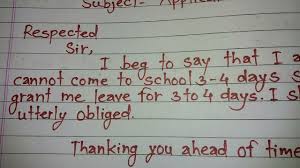 Subject- Applica
Respected
Sir,
I beg to say that I a
cannot come to school 3-4 days S
grant me leave for 3 to 4 days. I s
utterly obliged.
Thanking you ahead of time